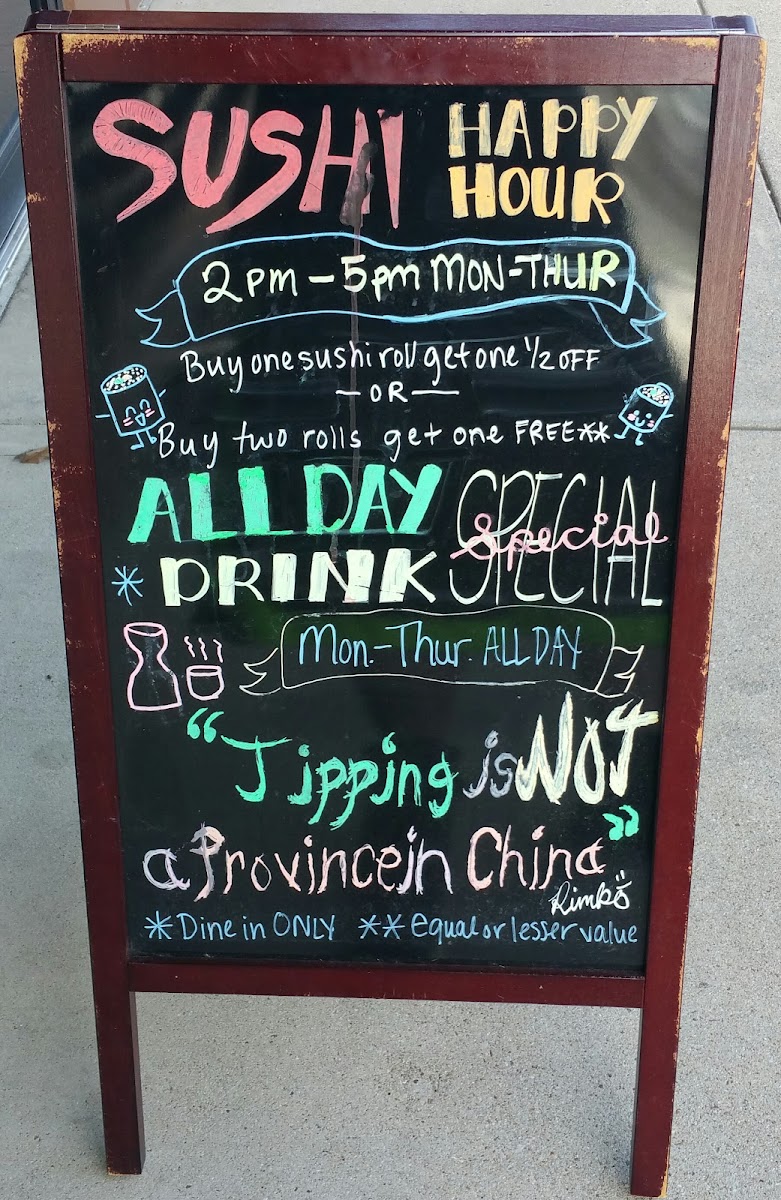 SUSHI HAPPY HOUR
2pm - 5pm MON-THUR
Buy one sushi roll get one 1/2 OFF
- OR -
Buy two rolls get one FREE**
ALL DAY SPECIAL
Special
* DRINK
Mon.-Thur. ALL DAY
"Tipping is NOT
a Province in China"
*Dine in ONLY **equal or lesser value